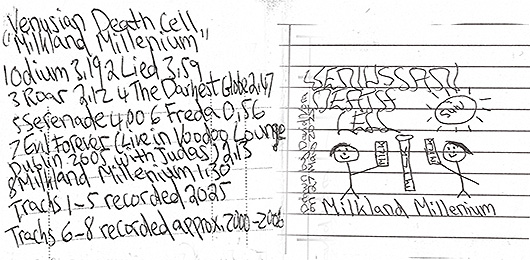 Venusian Death Cell
"Milkland Millenium"
1 Odium 3,19 2 Lied 3,59
3 Roar 2,12 4 The Darkest Globe 2,47
5 Serenade 4,00 6 Freda 0,56
7 Evil Forever (Live in Voodoo Lounge
Dublin 2005 with Judas) 2,13
8 Milkland Millenium 1,30
Tracks 1-5 recorded 2025
Tracks 6-8 recorded approx. 2000-2006
VENUSIAN
DEATH
CELL
SUN
MILK
MILK
MILK
Milkland Millenium